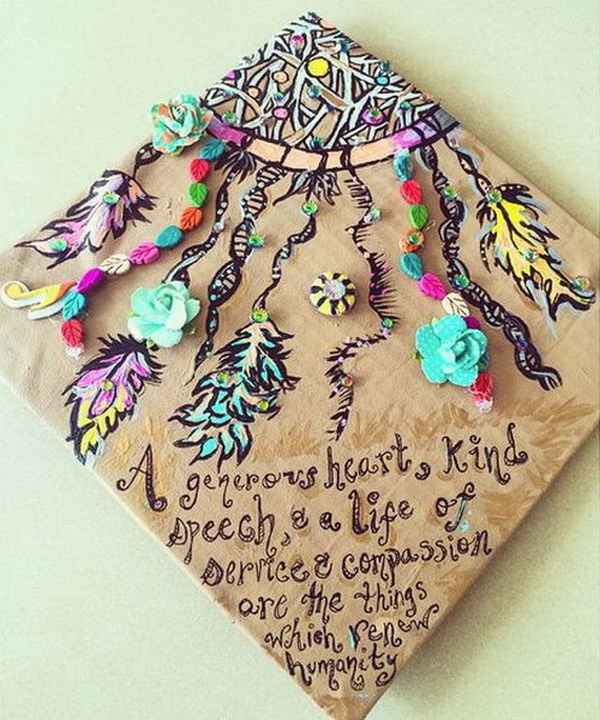 A generous heart, kind
speech, & a life of
service & compassion
are the things
which renew
humanity